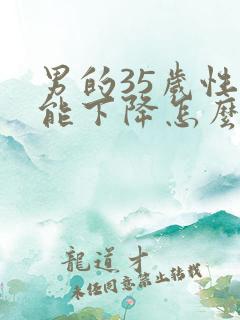 男的35歲性
能下降怎麼
龍道才
未經同意禁止轉載